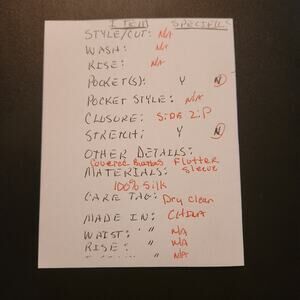 ITEM SPECIFICS
STYLE/CUT: N/A
WASH: N/A
RISE: N/A
POCKET(S): Y N
POCKET STYLE: N/A
CLOSURE: SiDE ZiP
STRETCH: Y N
OTHER DETAILS:
Covered Buttons Flutter Sleeve
MATERIALS:
100% Silk
CARE TAG: Dry Clean
MADE IN: CHINA
WAIST: " N/A
RISE: " N/A
" N/A